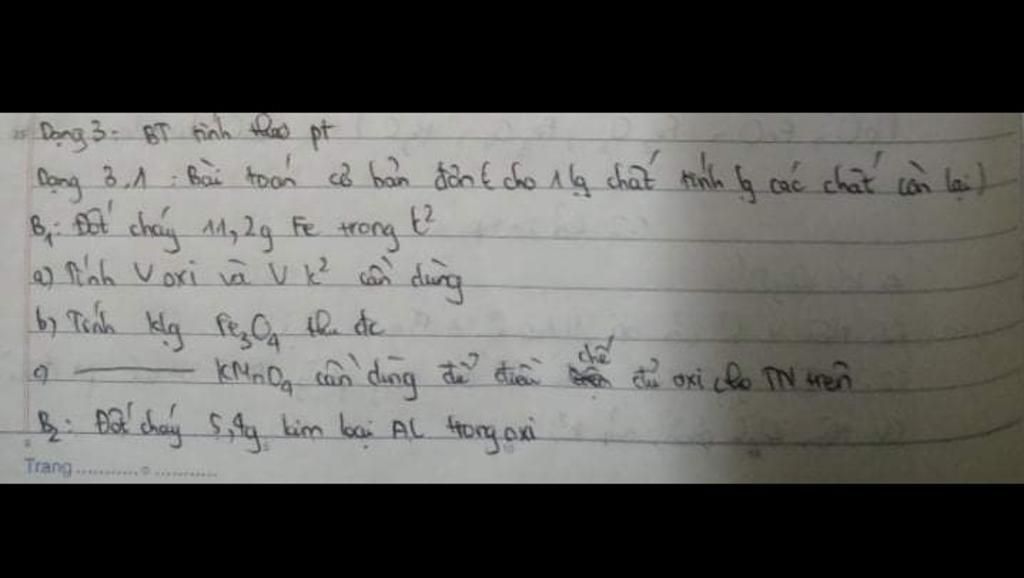 Dạng 3: BT tính theo pt
Dạng 3.1: Bài toán cơ bản đơn (cho 1 lg chất tính lg các chất còn lại)
B1: Đốt cháy 11,2g Fe trong k²
a) Tính V oxi và V k² cần dùng
b) Tính klg Fe3O4 th đc
c) ———— KMnO4 cần dùng để điều chế đủ oxi cho TN trên
B2: Đốt cháy 5,4g kim loại AL trong oxi
Trang